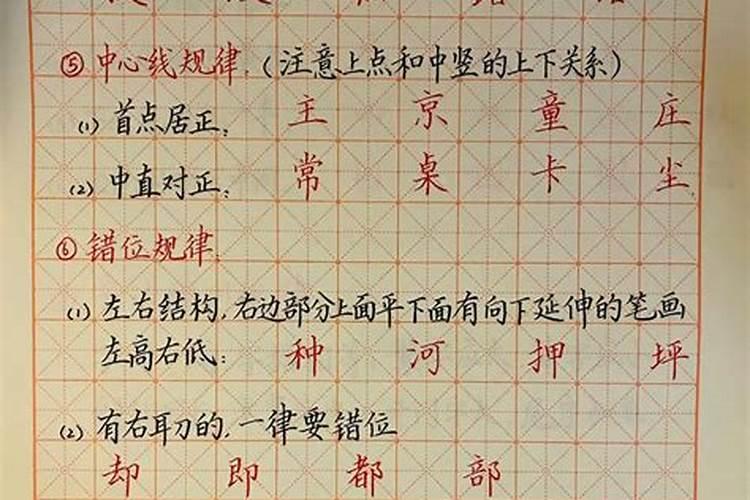 ⑤中心线规律.(注意上点和中竖的上下关系)
(1)首点居正: 主 京 童 庄
(2)中直对正: 常 桌 卡 尘
⑥错位规律.
(1)左右结构,右边部分上面平下面有向下延伸的笔画
左高右低: 种 河 押 坪
(2)有右耳刀的,一律要错位
却 即 都 部